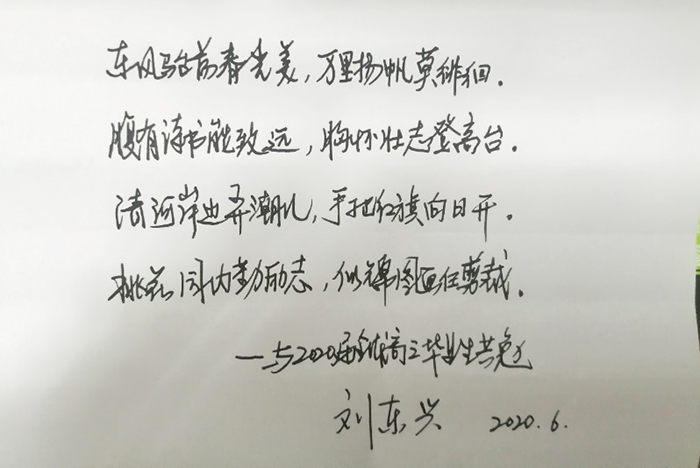 东风骀荡春光美，万里扬帆莫徘徊。
腹有诗书能致远，胸怀壮志登高台。
清河岸边弄潮儿，手把红旗向日开。
桃花园内勤励志，似锦图画任剪裁。
——与2020届全体高三毕业生共勉
刘东兴 2020.6.